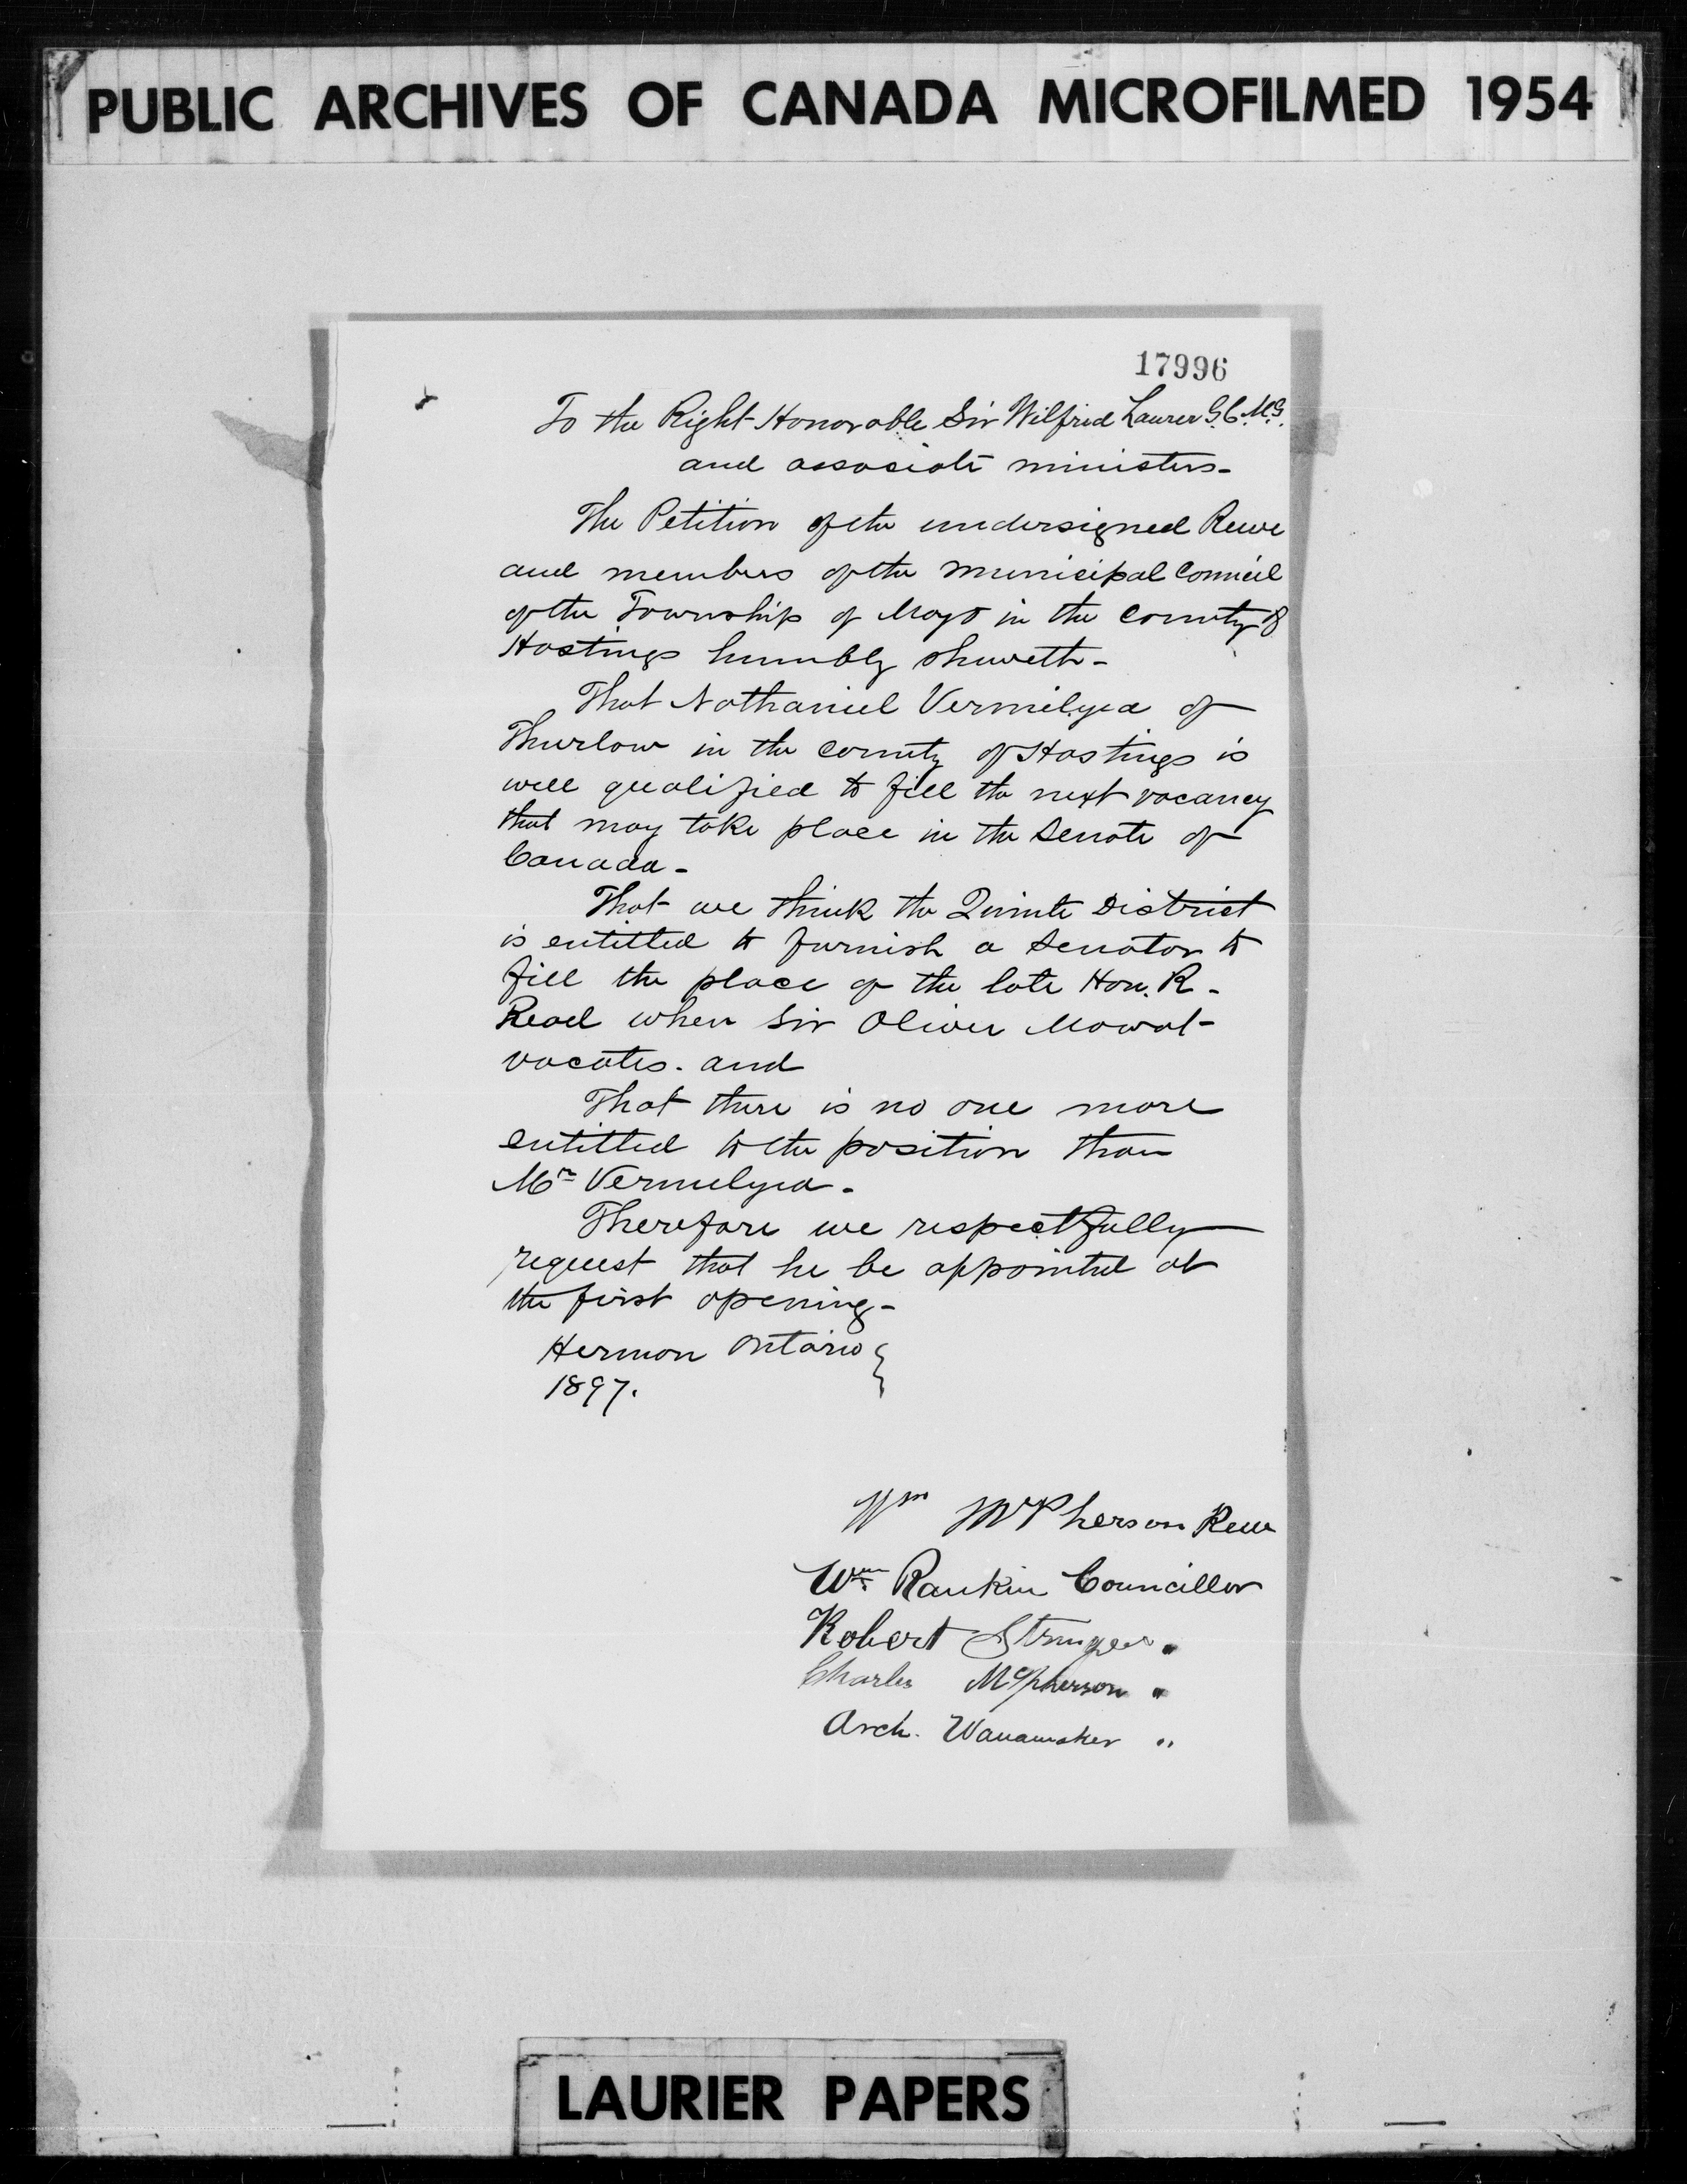 PUBLIC ARCHIVES OF CANADA MICROFILMED 1954
17996
To the Right Honorable Sir Wilfrid Laurier G.C.M.G.
and associate ministers-
The Petition of the undersigned Reeve
and members of the Municipal Council
of the Township of Mayo in the County of
Hastings humbly sheweth-
That Nathaniel Vermilyea of
Thurlow in the County of Hastings is
well qualified to fill the next vacancy
that may take place in the Senate of
Canada-
That we think the Quinte District
is entitled to furnish a Senator to
fill the place of the late Hon. R-
Read when Sir Oliver Mowat-
vacates. and
That there is no one more
entitled to the position than
Mr Vermilyea-
Therefore we respectfully
request that he be appointed at
the first opening-
Hermon Ontario
1897.
Wm McPherson Reeve
Wm Rankin Councillor
Robert Stringer "
Charles McPherson "
Arch. Wanamaker "
LAURIER PAPERS